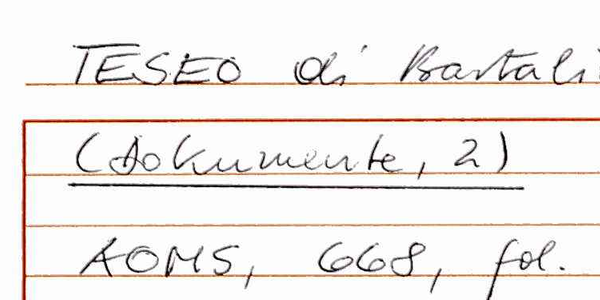 TESEO di Bartali
(dokumente, 2)
AOMS, 668, fol.